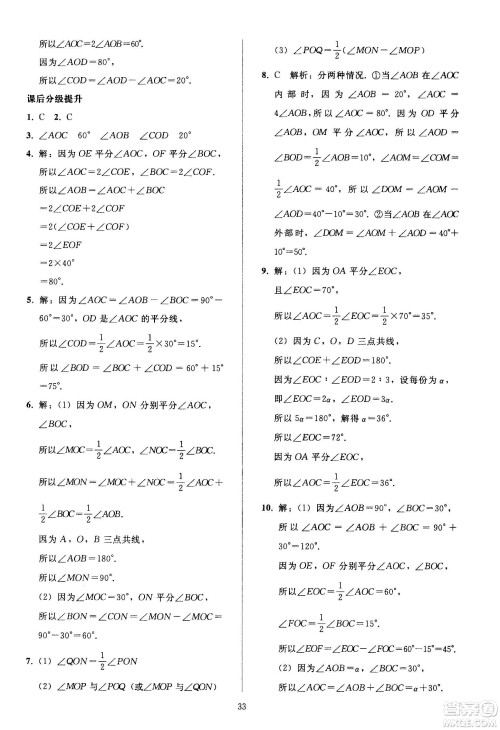 所以∠AOC=2∠AOB=60°.
因为∠AOD=80°.
所以∠COD=∠AOD-∠AOC=20°.
课后分级提升
1. C  2. C
3. ∠AOC  60°  ∠AOB  ∠COD  20°
4. 解：因为 OE 平分∠AOC, OF 平分∠BOC,
所以∠AOC=2∠COE, ∠BOC=2∠COF.
所以∠AOB=∠AOC+∠BOC
=2∠COE+2∠COF
=2(∠COE+∠COF)
=2∠EOF
=2×40°
=80°.
5. 解：因为∠AOC=∠AOB-∠BOC=90°-
60°=30°, OD 是∠AOC的平分线,
所以∠COD=1/2∠AOC=1/2×30°=15°.
所以∠BOD=∠BOC+∠COD=60°+15°
=75°.
6. 解：(1) 因为 OM, ON 分别平分∠AOC,
∠BOC,
所以∠MOC=1/2∠AOC, ∠NOC=1/2∠BOC.
所以∠MON=∠MOC+∠NOC=1/2∠AOC+
1/2∠BOC=1/2∠AOB.
因为 A, O, B 三点共线,
所以∠AOB=180°.
所以∠MON=90°.
(2) 因为∠MOC=90°-∠NOC=30°,
所以∠BON=∠CON=∠MON-∠MOC=
90°-30°=60°.
7. (1) ∠QON=1/2∠PON
(2) ∠MOP与∠POQ (或∠MOP与∠QON)
(3) ∠POQ=1/2(∠MON-∠MOP)
8. C  解析：分两种情况. ①当∠AOC在∠AOB
内部时, 因为∠AOC=20°, ∠AOB=
4∠AOC, 所以∠AOB=80°. 因为 OD 平分
∠AOB, OM 平分∠AOC, 所以∠AOD=
∠BOD=1/2∠AOB=40°, ∠AOM=∠COM=
1/2∠AOC=10°. 所以∠DOM=∠AOD-
∠AOM=40°-10°=30°. ②当∠AOC在∠AOB
外部时, ∠DOM=∠AOM+∠AOD=10°+
40°=50°.
9. 解：(1) 因为 OA 平分∠EOC,
且∠EOC=70°,
所以∠AOC=1/2∠EOC=1/2×70°=35°.
(2) 因为 C, O, D 三点共线,
所以∠COE+∠EOD=180°.
因为∠EOC:∠EOD=2:3, 设每份为α,
即∠EOC=2α, ∠EOD=3α,
所以5α=180°, 解得α=36°.
所以∠EOC=2α=72°.
因为 OA 平分∠EOC,
所以∠AOC=1/2∠EOC=36°.
10. 解：(1) 因为∠AOB=90°, ∠BOC=30°,
所以∠AOC=∠AOB+∠BOC=90°+
30°=120°.
因为 OE, OF 分别平分∠AOC, ∠BOC,
所以∠EOC=1/2∠AOC=60°,
∠FOC=1/2∠BOC=15°.
所以∠EOF=∠EOC-∠FOC=60°-15°=45°.
(2) 因为∠AOB=α, ∠BOC=30°,
所以∠AOC=∠AOB+∠BOC=α+30°.
33